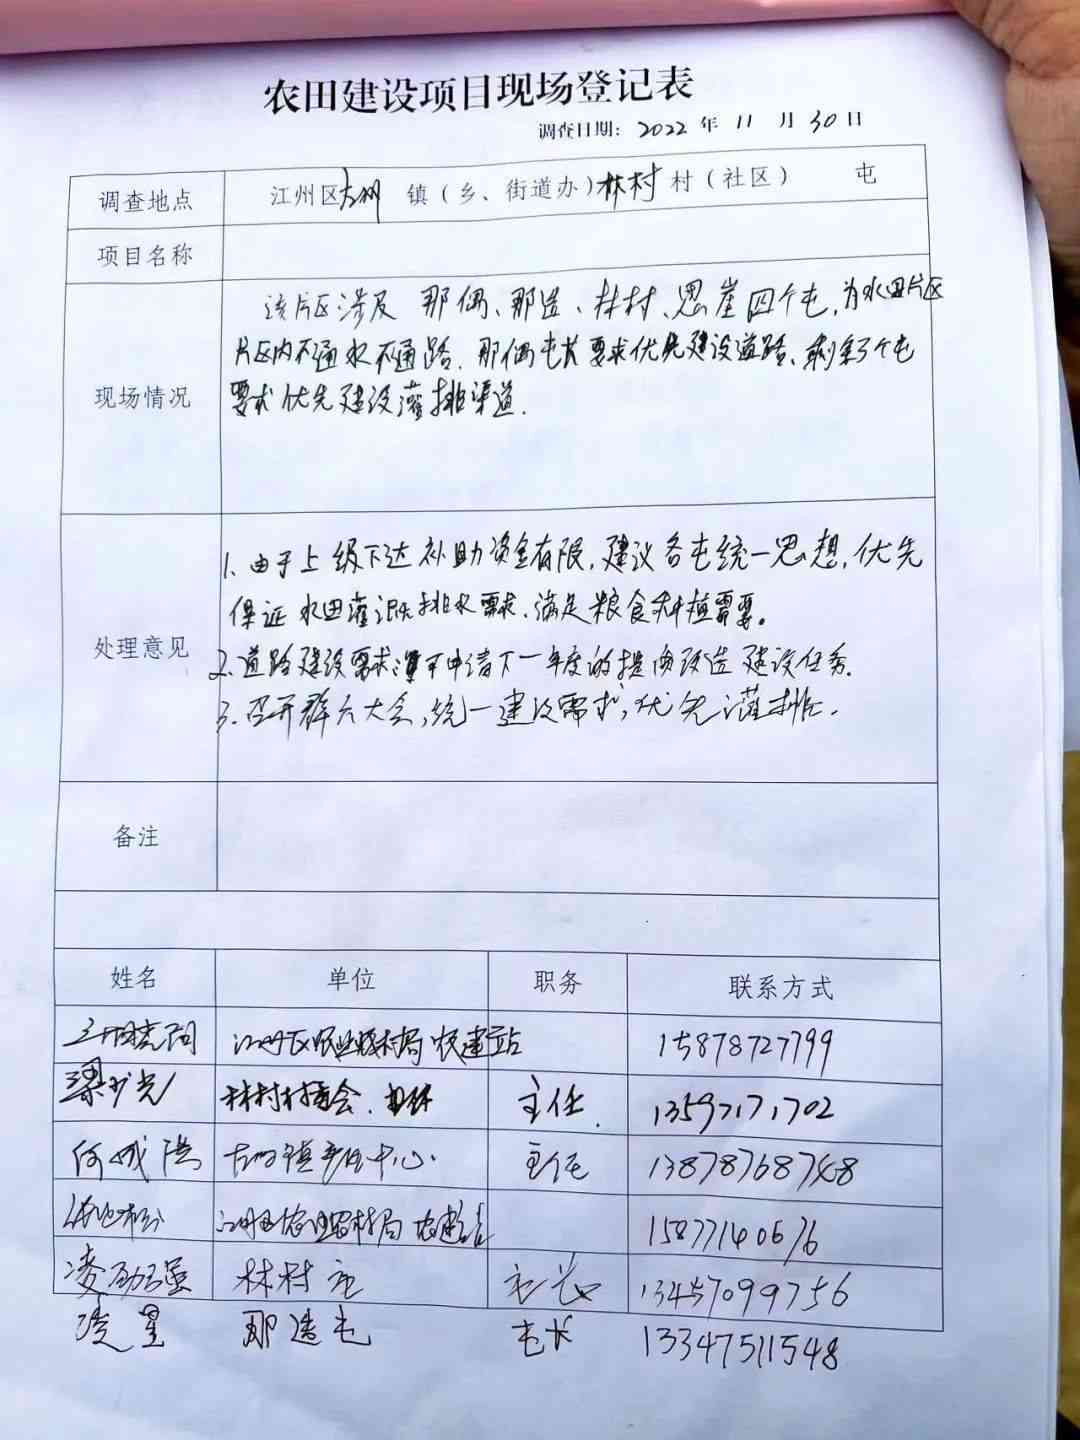 农田建设项目现场登记表
调查日期：2022年11月30日
调查地点 江州区左州镇（乡、街道办）林村村（社区） 屯
项目名称
现场情况
该片区涉及那偶、那造、林村、思崖四个屯，为水田片区
片区内不通水不通路，那偶屯长要求优先建设道路、剩余3个屯
要求优先建设灌排渠道.
处理意见
1、由于上级下达补助资金有限，建议各屯统一思想，优先
保证水田灌溉排水需求、满足粮食种植需要。
2、道路建设需求 可申请下一年度的提质改造建设任务.
3、召开群众大会，统一建设需求，优先灌排.
备注
姓名 单位 职务 联系方式
江州区农业农村局 农建站 15878727799
梁 光 林村村委会 主任. 13597171702
何 洪 左州镇 中心. 主任 13878768748
江州区农业农村局 农建站 15877140676
凌劲强 林村屯 屯长 13457099756
凌星 那造屯 屯长 13347511548